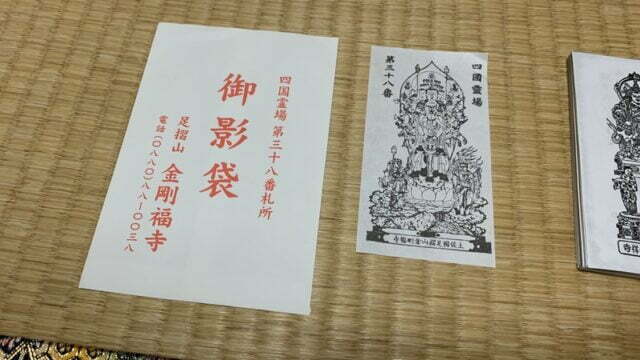 四国霊場 第三十八番札所
御影袋
足摺山 金剛福寺
電話(〇八八〇)八八-〇〇三八
四國霊場
第三十八番
土佐國足摺山金剛福寺